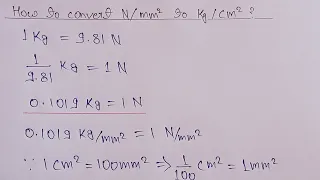 How to convert N/mm² to Kg/cm²?
1 Kg = 9.81 N
1/9.81 Kg = 1 N
0.1019 Kg = 1 N
0.1019 Kg/mm² = 1 N/mm²
∵ 1 cm² = 100 mm² ⇒ 1/100 cm² = 1 mm²